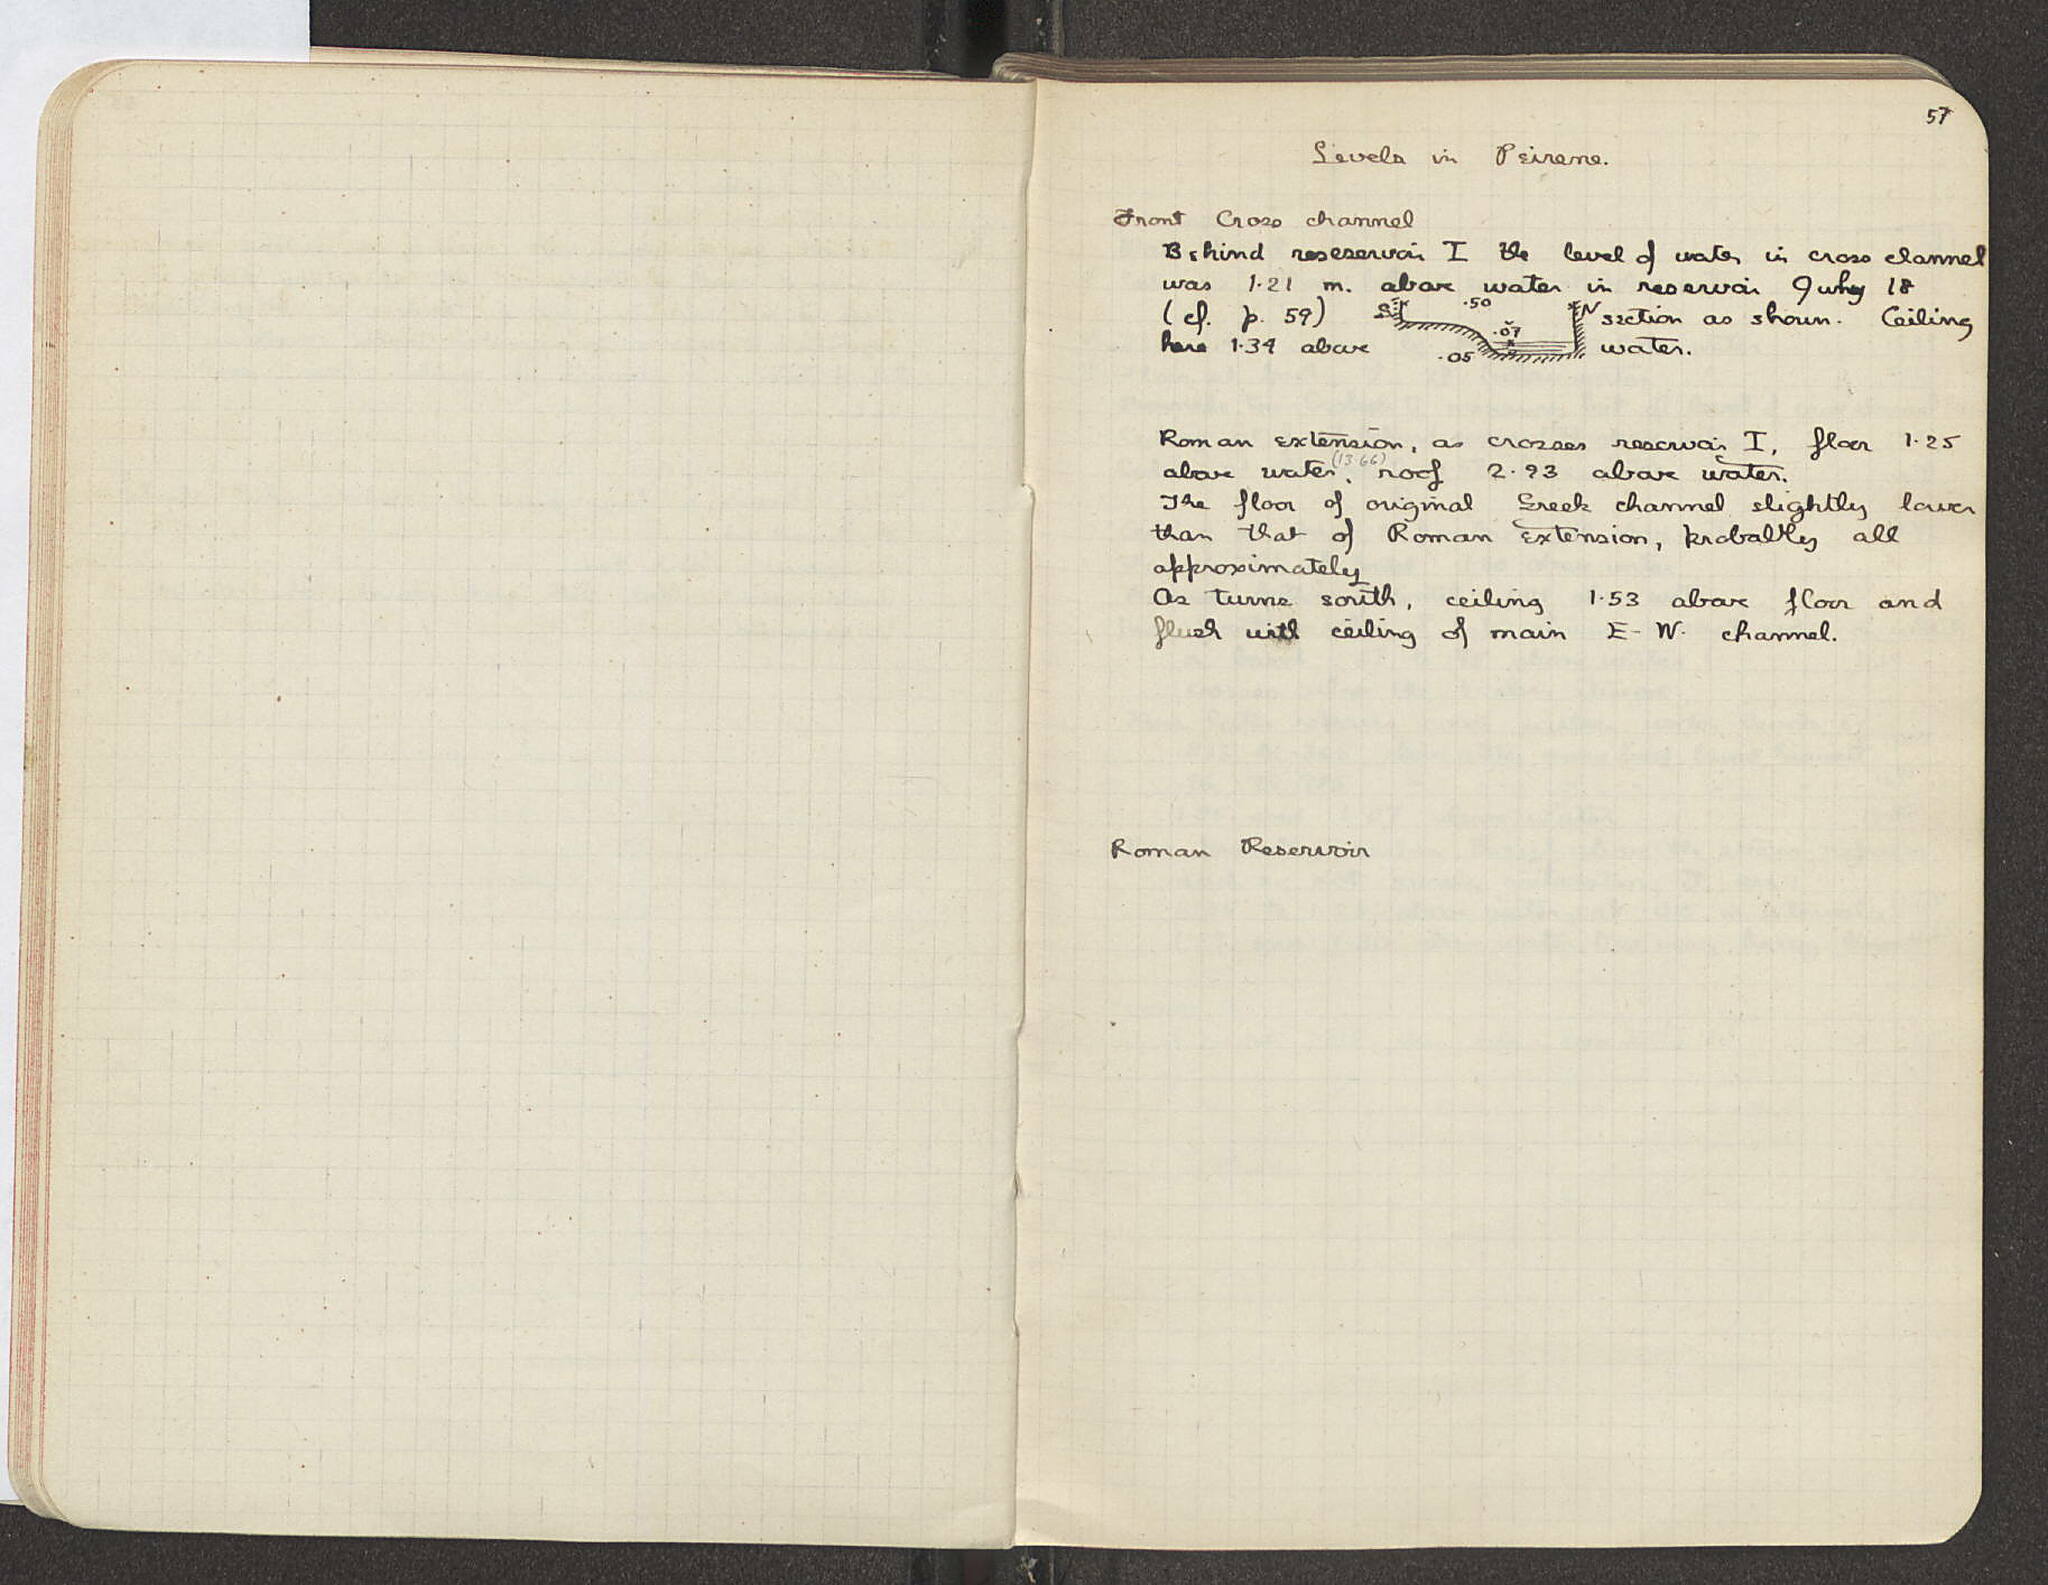 57
Levels in Peirene.
Front Cross channel
Behind reseservoir I the level of water in cross channel
was 1.21 m. above water in reservoir July 18
(cf. p. 59) S .50 N section as shown. Ceiling
.07
here 1.34 above .05 water.
Roman extension, as crosses reservoir I, floor 1.25
(13.66)
above water, roof 2.93 above water.
The floor of original Greek channel slightly lower
than that of Roman extension, probably all
approximately
As turns south, ceiling 1.53 above floor and
flush with ceiling of main E-W. channel.
Roman Reservoir